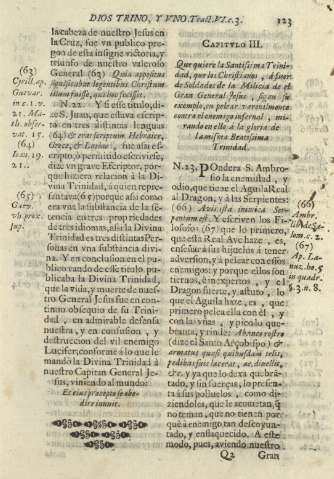 DIOS TRINO, Y VNO. Tract. VI. c. 3. 123
la cabeza de nuestro Jesus en
la Cruz, fue va publico pre-
gon de esta insigne victoria, y
triunfo de nuestro valeroso
General (63) Quia appositum
significabat legentibus Christum
illum fuisse, ac hoc fecisset.
N. 22. Y si esse titulo, di-
ze S. Juan, que estava escrip-
to en tres distintas lenguas
(64) & erat scriptum Hebraice,
Græce, & Latine, fue assi es-
cripto, ò permitido escrivirse,
dize vn grave Escriptor, por-
que huviera relacion à la Di-
vina Trinidad, à quien repre-
sentava (65) porque assi como
era vna la substancia de la Se-
tencia en tres propriedades
de tres idiomas, assi la Divina
Trinidad es tres distintas Per-
sonas en vna substancia divi-
na. Y en conclusion en el pu-
blicar ando de esse titulo, pu-
blicaba la Divina Trinidad,
que la vida, y muerte de nues-
tro General Jesus fue en con-
tinuo obsequio de su Trini-
dad, en admirable defensa
nuestra, y en confusion, y
destruccion del vil enemigo
Lucifer, conforme à lo que le
mandò la Divina Trinidad à
nuestro Capitan General Je-
sus, viniendo al mundo:
Et eius præcepto se obe-
dire innuit.
(63)
Cyrill. ap.
Guevar.
in c. 1. v.
21. Ma-
th. obser-
vat. 15.
(64)
Ioan. 19.
21.
(65)
CAPITULO III.
Que quiere la Santisima Trini-
dad, que los Christianos, à fuer
de Soldados de la Milicia de el
Gran General Jesus, sigan su
exemplo, en pelear varonilmente
contra el enemigo infernal, mi-
rando en ello à la gloria de
la misma Beatisima
Trinidad.
N. 23. POndera S. Ambro-
sio la enemistad, y
odio, que tiene el Aguila Real
al Dragon, y à las Serpientes:
(66) Avis ista inimica Ser-
pentum est. Y escriven los Fi-
losofos (67) que lo primero,
que esta Real Ave haze, es,
enseñar à sus hijuelos à tener
adversion, y à pelear con essos
enemigos; y porque ellos son
tiernos, è inexpertos, y el
Dragon fuerte, y astuto, lo
que el Aguila haze, es, que
primero pelea ella con èl, y
con las vñas, y pico lo que-
branta, y rinde: Abunco rostro
(dize el Santo Arçobispo) &
armatus quasi quibusdam telis,
pedibus suis lacerat, ac divellit,
&c. y ya que lo dexa quebra-
tado, y sin fuerças, lo presen-
ta à sus polluelos, como di-
ziendoles, que le acometan, q̃
no teman, que no tienen por
què à enemigo tan desengun-
tado, y enflaquecido. A este
modo, pues, aviendo nuestro
(66)
Ambr.
(67)
Ap. La-
Q2 Gran